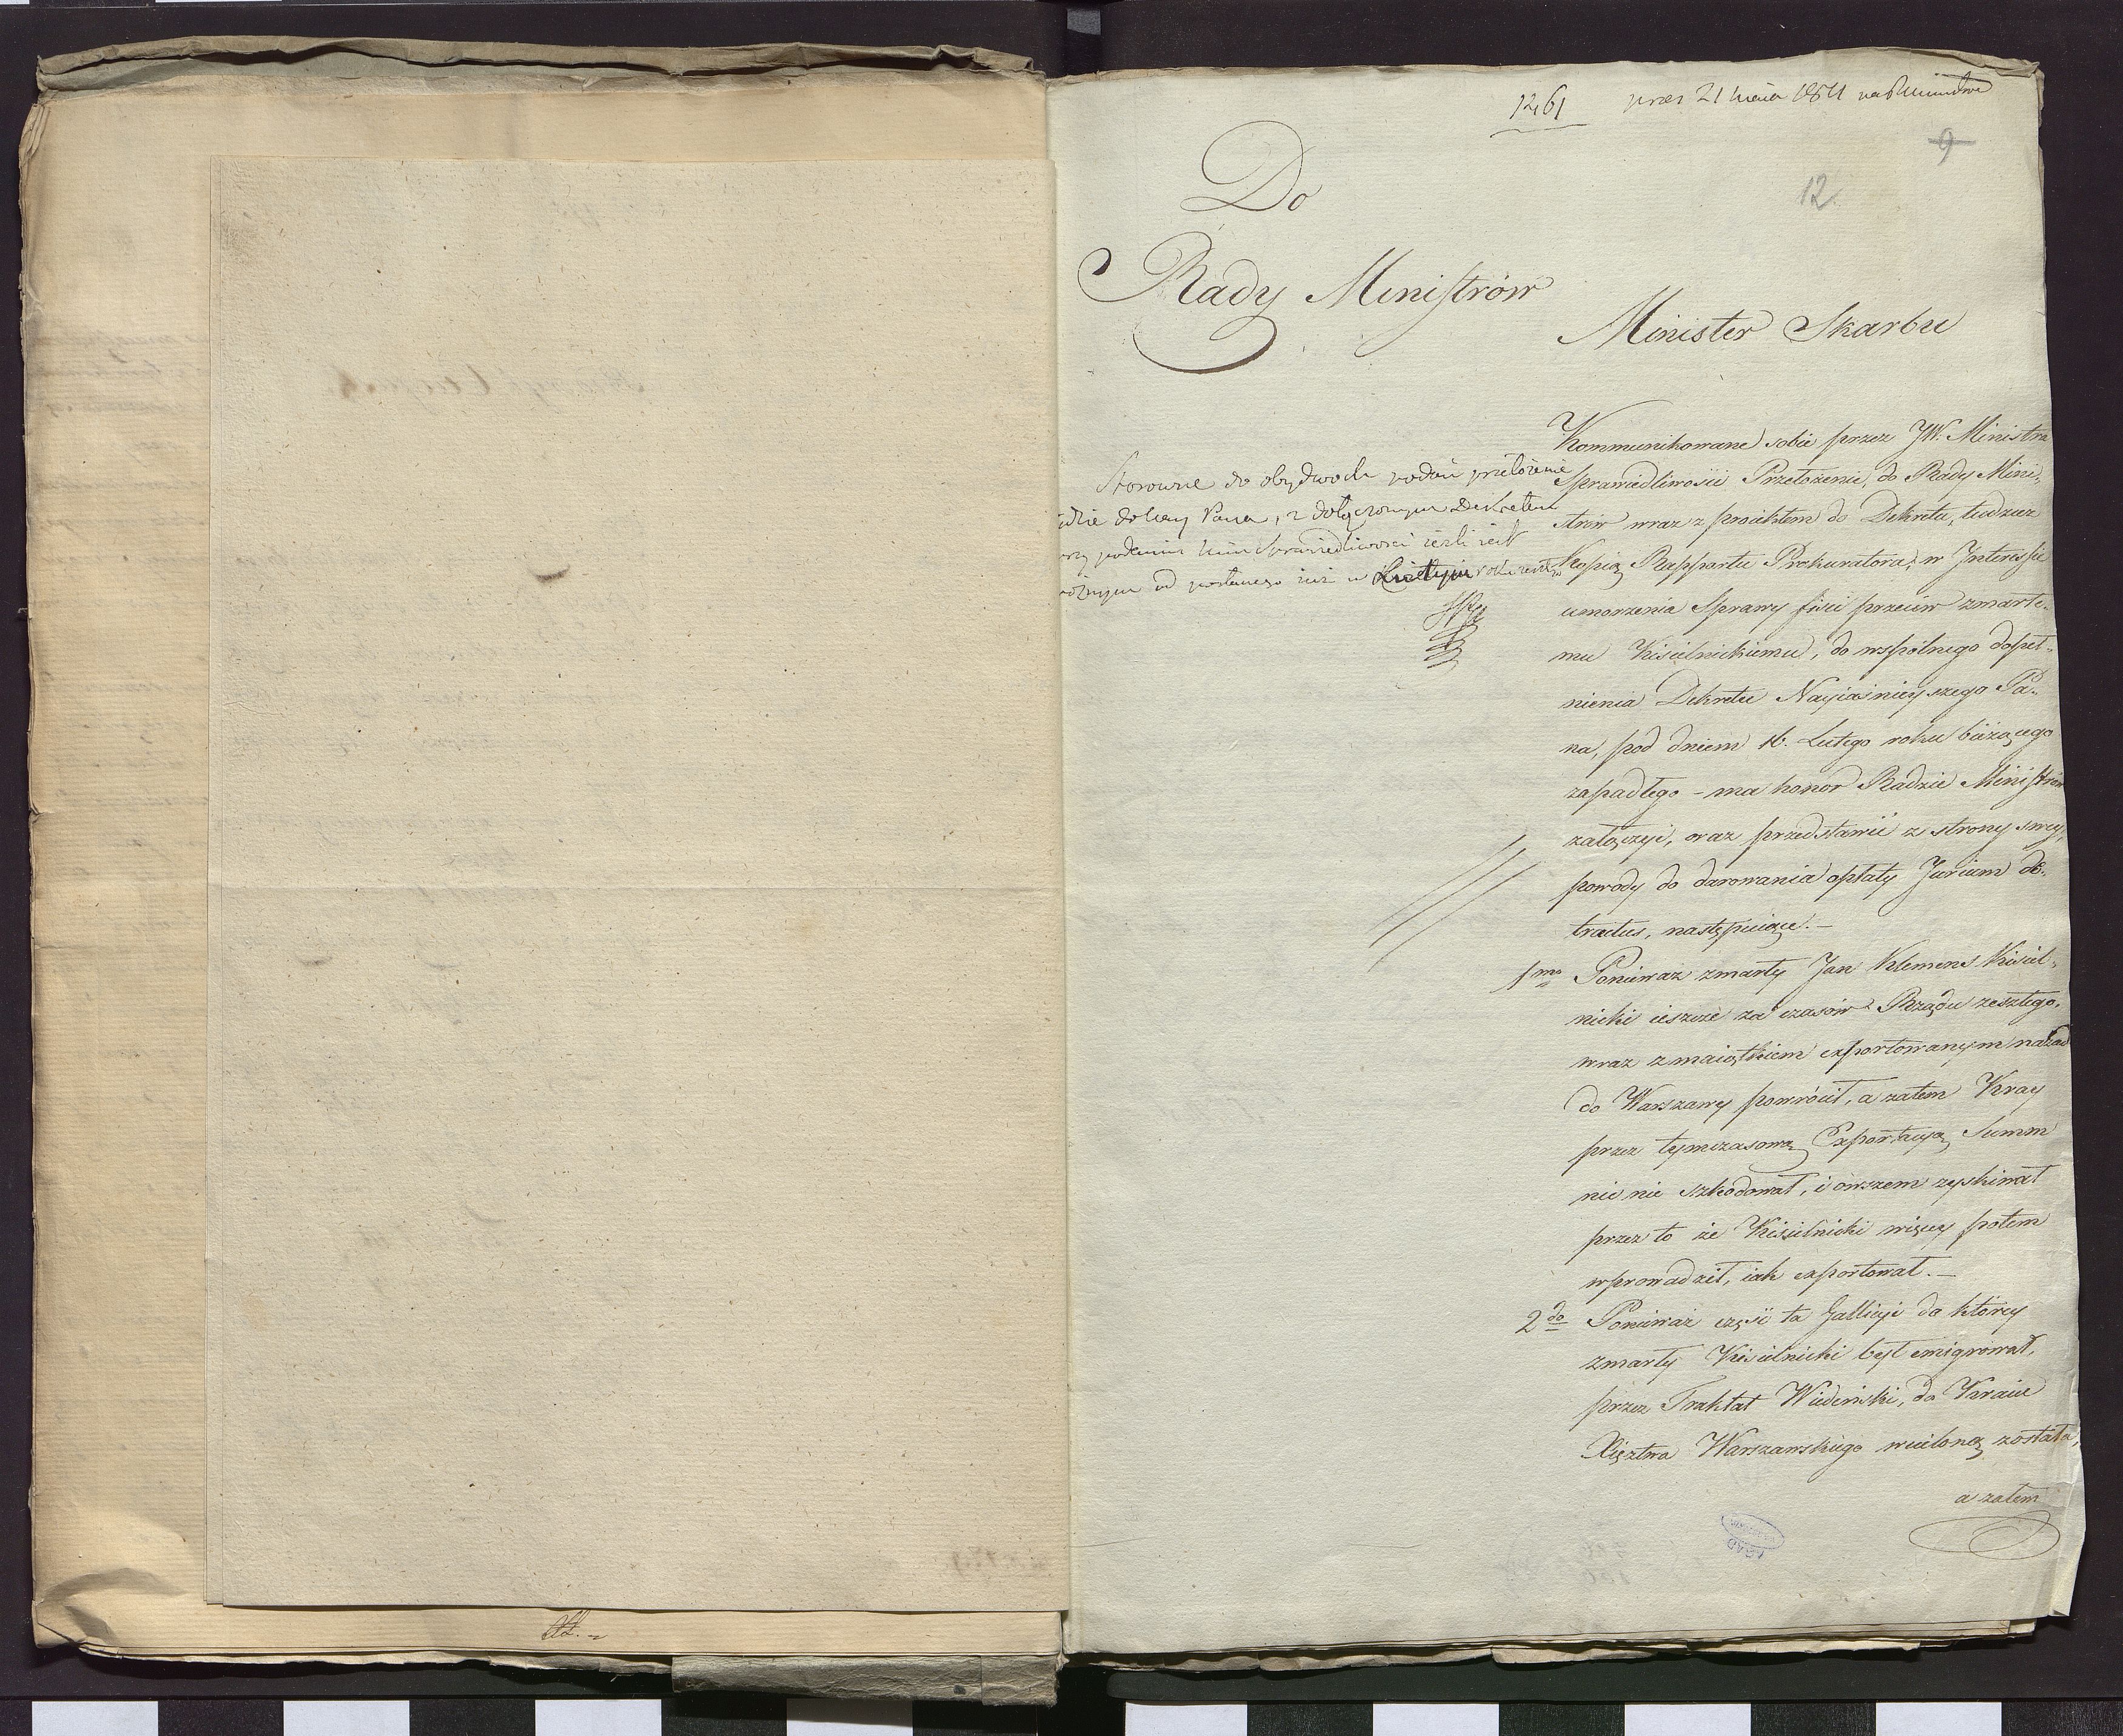 1261 prez 21 maia 1811
9
12
Do
Rady Ministrów
Minister Skarbu
Stosownie do obydwoch podań przełożenie
do Pana, z dołączonym Dekretem
Sprawiedliwosci iesli iest
od iuz w
Kommunikowane sobie przez JW. Ministra
Sprawiedliwości Przełożenie, do Rady Mini-
strów wraz z proiektem do Dekretu, tudzież
Kopią Rapportu Prokuratora, w Interessie
umorzenia Sprawy fisci przeciw zmarłe-
mu Kisielnickiemu, do wspólnego dopeł-
nienia Dekretu Nayiaśnieyszego Pa-
na, pod dniem 16. Lutego roku bieżącego
zapadłego - ma honor Radzie Ministrów
załączyć, oraz przedstawić z strony swey,
powody do darowania opłaty Jurium de-
tractus, następuiące. -
1mo Ponieważ zmarły Jan Klemens Kisiel-
nicki ieszcze za czasów Rządu zeszłego,
wraz z maiątkiem exportowanym nazad
do Warszawy powrócił, a zatem Kray
przez tymczasową Exportacyą Summ
nic nie szkodował, i owszem zyskiwał
przez to że Kisielnicki więcey potem
wprowadził, iak exportował. -
2do Ponieważ część ta Gallicyi do którey
zmarły Kisielnicki był emigrował,
przez Traktat Wiedeński, do Kraiu
Xięztwa Warszawskiego wcieloną została,
a zatem
AGAD